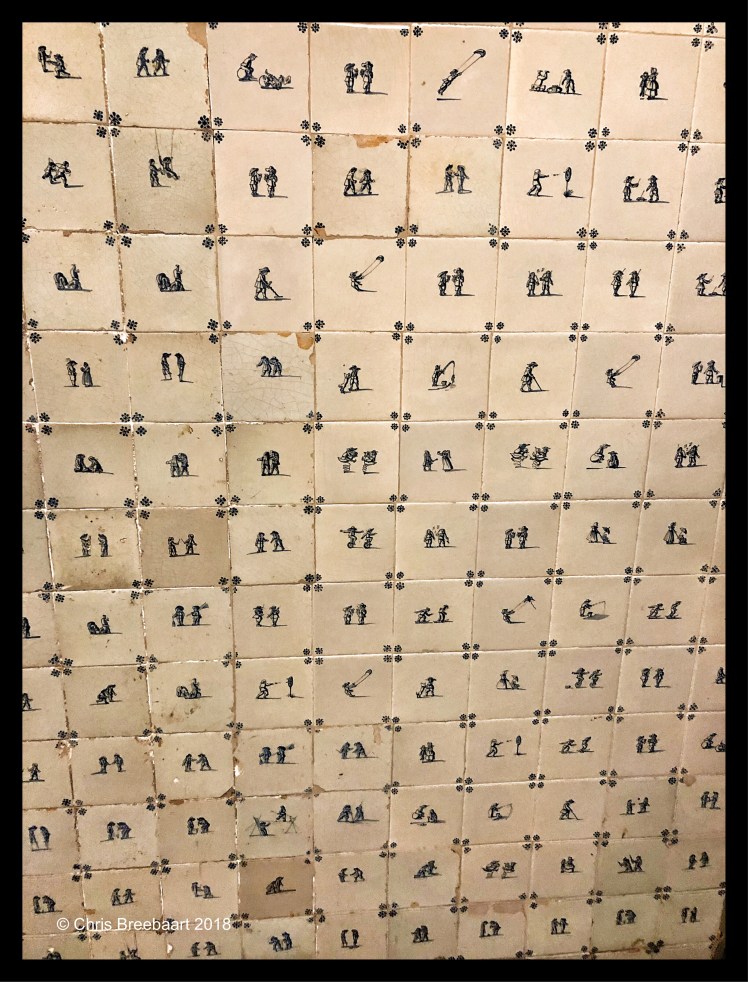 © Chris Breebaart 2018